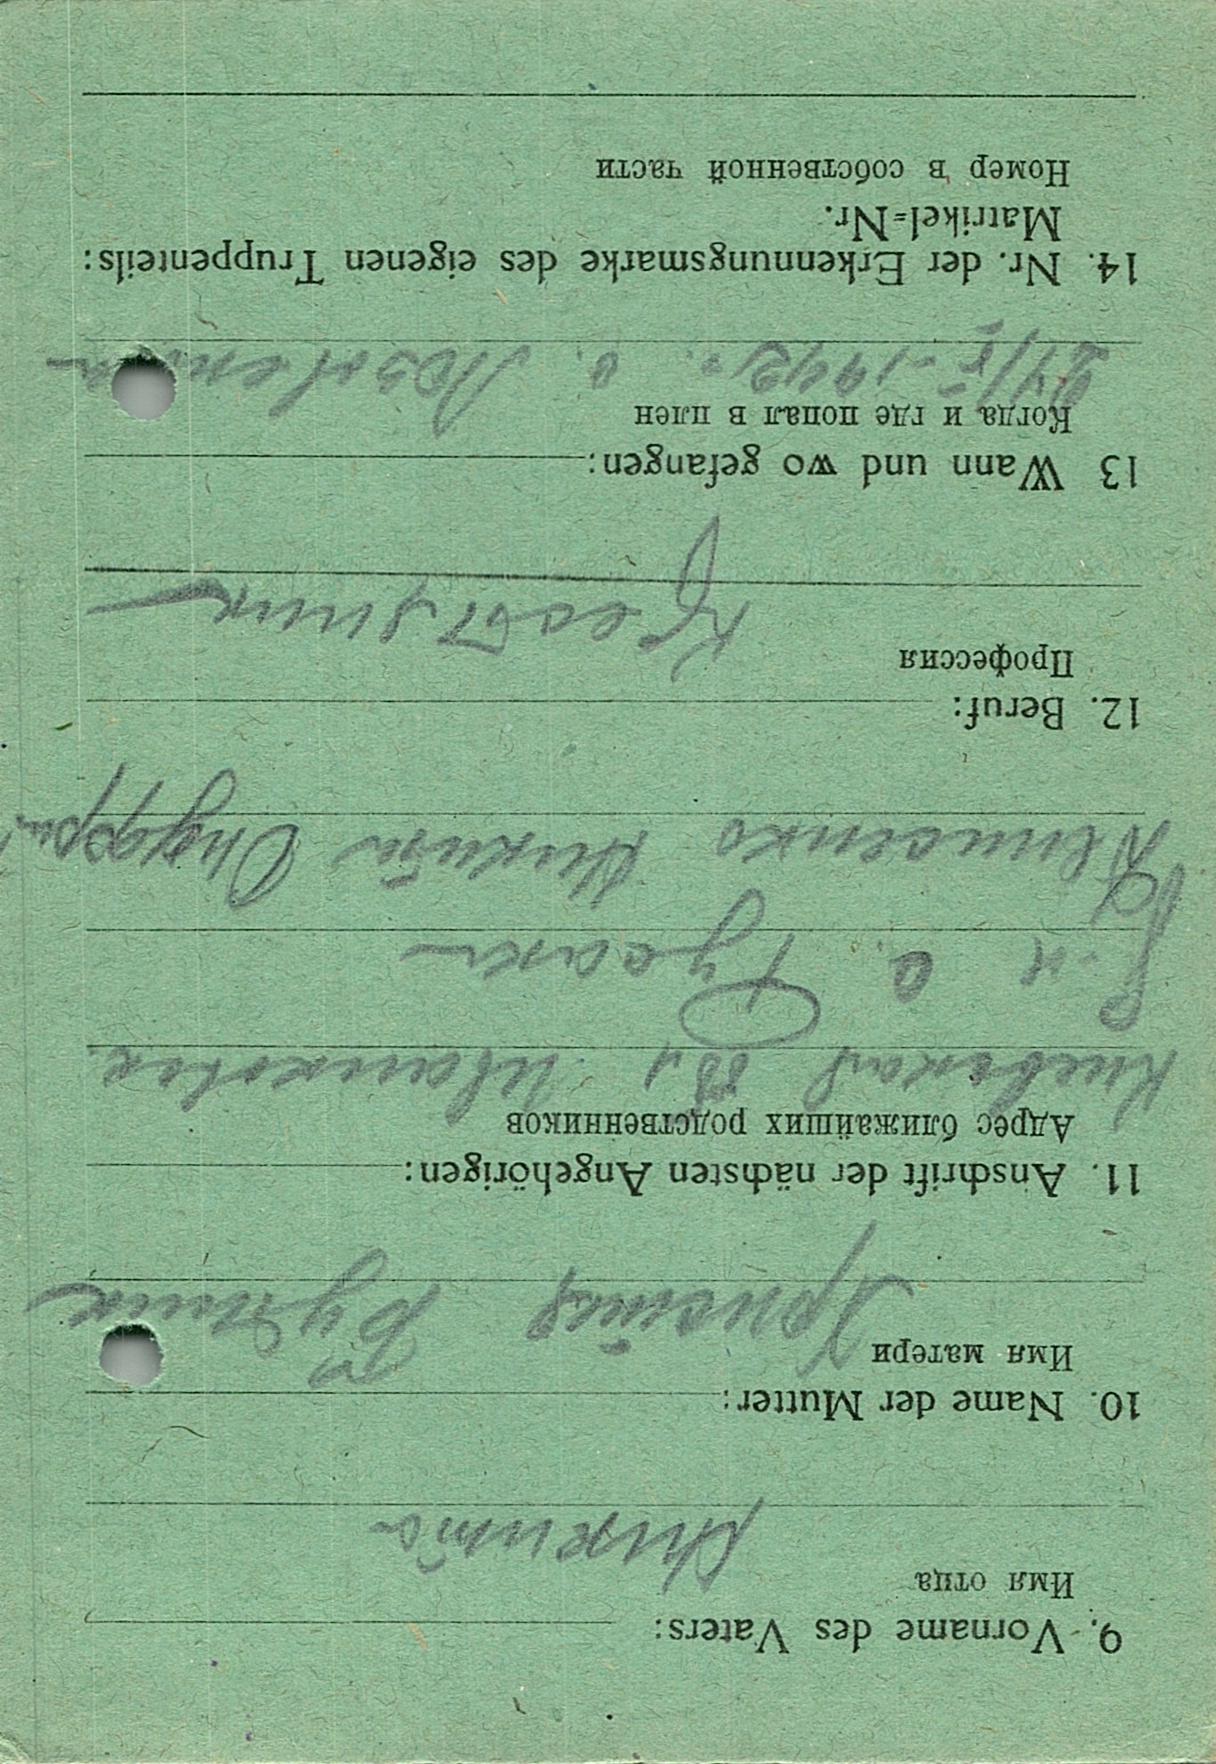 9. Vorname des Vaters:
Имя отца
Никита
10. Name der Mutter:
Имя матери
Христя
11. Anschrift der nächsten Angehörigen:
Адрес ближайших родственников
Киевская
р-н с. Русаки
Никита
12. Beruf:
Профессия
Крестянин
13 Wann und wo gefangen:
Когда и где попал в плен
1942. с. Лозовенка
14. Nr. der Erkennungsmarke des eigenen Truppenteils:
Matrikel=Nr.
Номер в собственной части